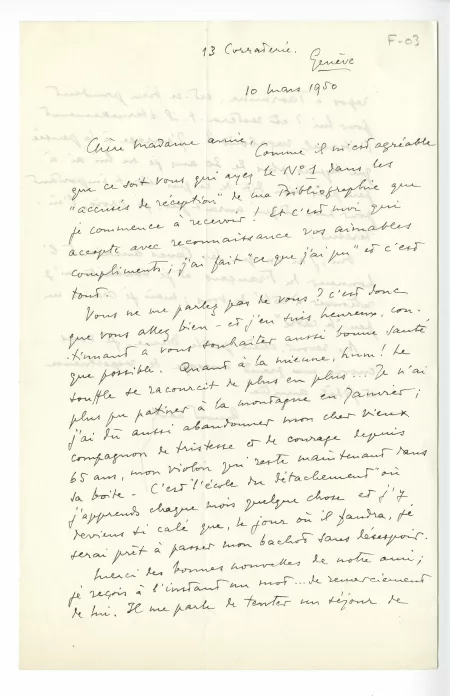 F-03
13 Corraterie.
Genève
10 mars 1950
Chère Madame amie,
Comme il m'est agréable
que ce soit vous qui ayez le N° 1 dans les
"accusés de réception" de ma Bibliographie que
je commence à recevoir ! Et c'est moi qui
accepte avec reconnaissance vos aimables
compliments ; j'ai fait "ce que j'ai pu" et c'est
tout.
Vous ne me parlez pas de vous ? c'est donc
que vous allez bien - et j'en suis heureux, con-
tinuant à vous souhaiter aussi bonne santé
que possible. Quant à la mienne, hum ! Le
souffle se racourcit de plus en plus... Je n'ai
plus pu patiner à la montagne en Janvier ;
j'ai dû aussi abandonner mon cher vieux
compagnon de tristesse et de courage depuis
65 ans, mon violon qui reste maintenant dans
sa boite - C'est l'école du détachement où
j'apprends chaque mois quelque chose et j'y
deviens si calé que, le jour où il faudra, je
serai prêt à passer mon bachot sans désespoir.
Merci des bonnes nouvelles de notre ami ;
je reçois à l'instant un mot... de remerciement
de lui. Il me parle de tenter un séjour de